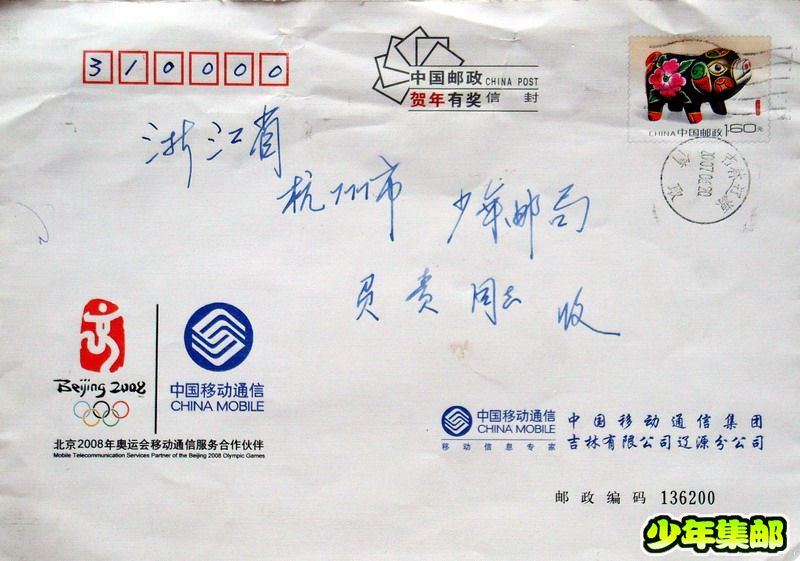 310000
中国邮政 CHINA POST
贺年有奖信封
CHINA中国邮政 160元
2007.06.20
浙江省
杭州市 少年邮局
员贵同志 收
Beijing 2008
中国移动通信
CHINA MOBILE
北京2008年奥运会移动通信服务合作伙伴
Mobile Telecommunication Services Partner of the Beijing 2008 Olympic Games
中国移动通信
CHINA MOBILE
移动信息专家
中国移动通信集团
吉林有限公司辽源分公司
邮政编码 136200
少年集邮